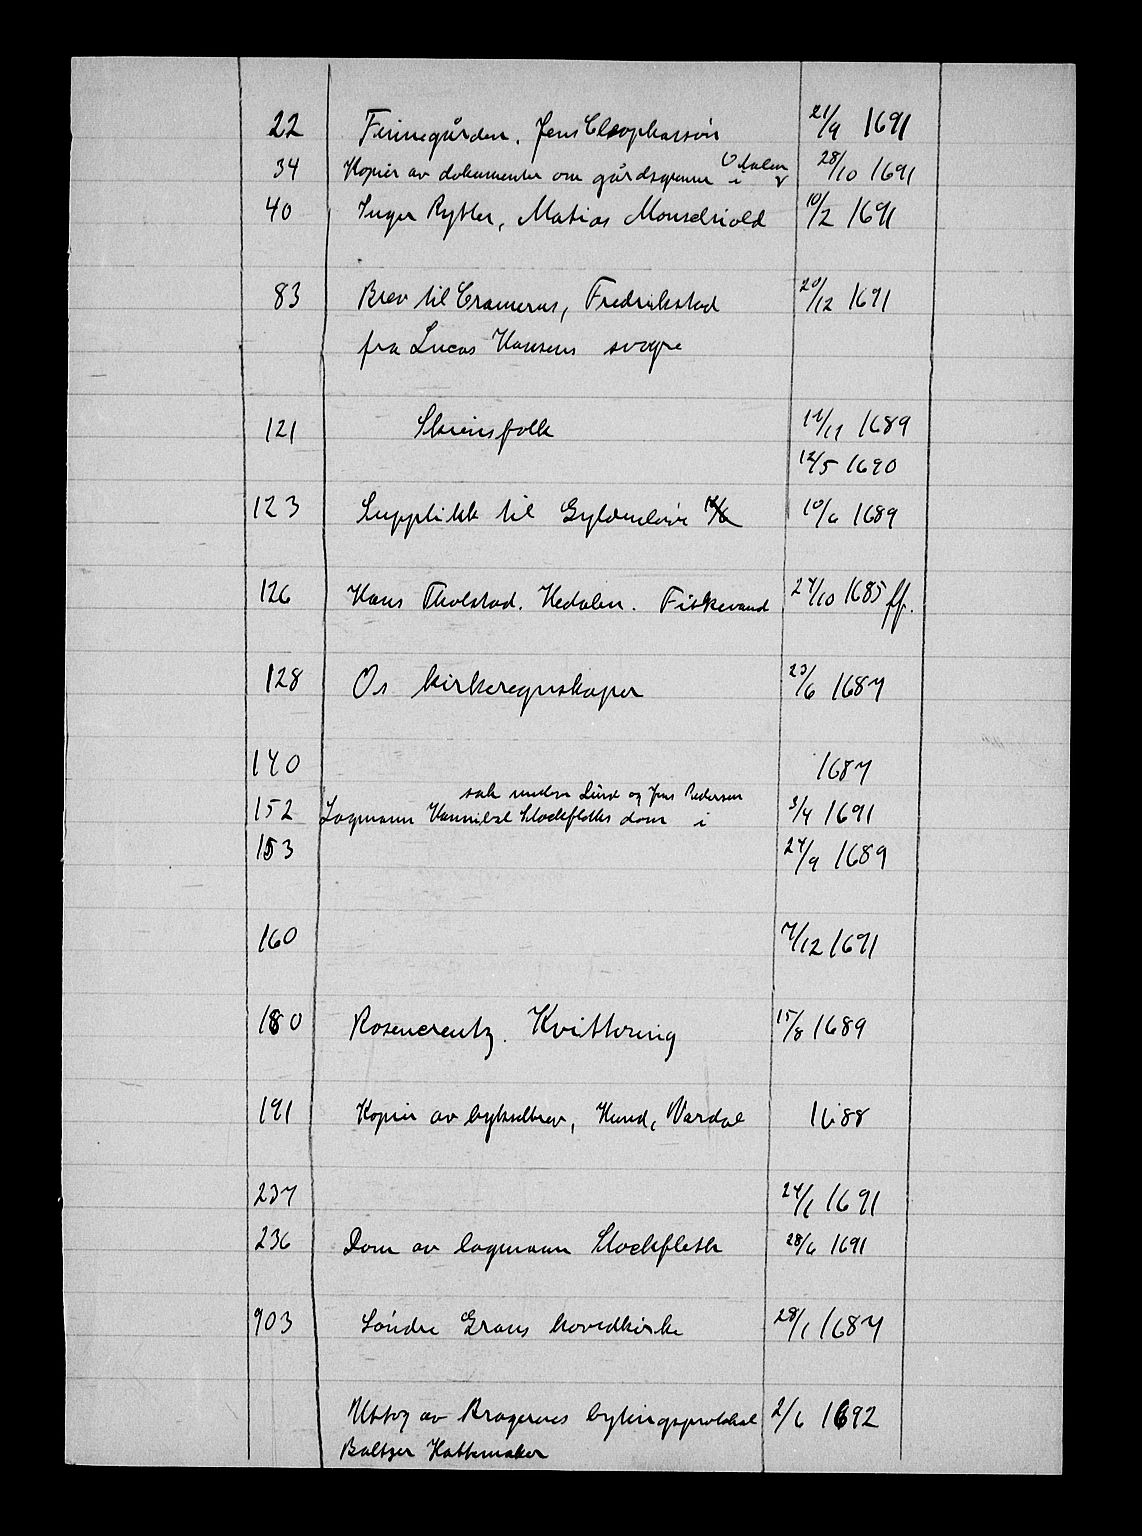 22 Finnegården. Jens Cleophassøn 21/9 1691
34 Kopier av dokumenter om gårdsgrenser i Odalen 28/10 1691
40 Inger Rytter, Matias Monsdriold 10/2 1691
83 Brev til Cramerus, Fredrikstad 20/12 1691
fra Lucas Hansens svogre
121 Skiensfolk 11/11 1689
12/5 1690
123 Supplikk til Gyldenløve 10/6 1689
126 Hans Tholstad. Hedalen. Fiskevand 27/10 1685 ff.
128 Os kirkeregnskaper 23/6 1687
140 1687
sak mellem Lund og Jens Pedersen
152 Lagmann Hannibal Stockfleths dom i 3/4 1691
153 27/9 1689
160 7/12 1691
180 Rosencrentz. Kvittering 15/8 1689
191 Kopier av bykselbrev, Hund, Vardal 1688
237 24/1 1691
236 Dom av lagmann Stockfleth 28/6 1691
903 Søndre Grans hovedkirke 28/1 1687
Uttog av Bragernes bytingsprotokol 2/6 1692
Baltzer Hattemaker